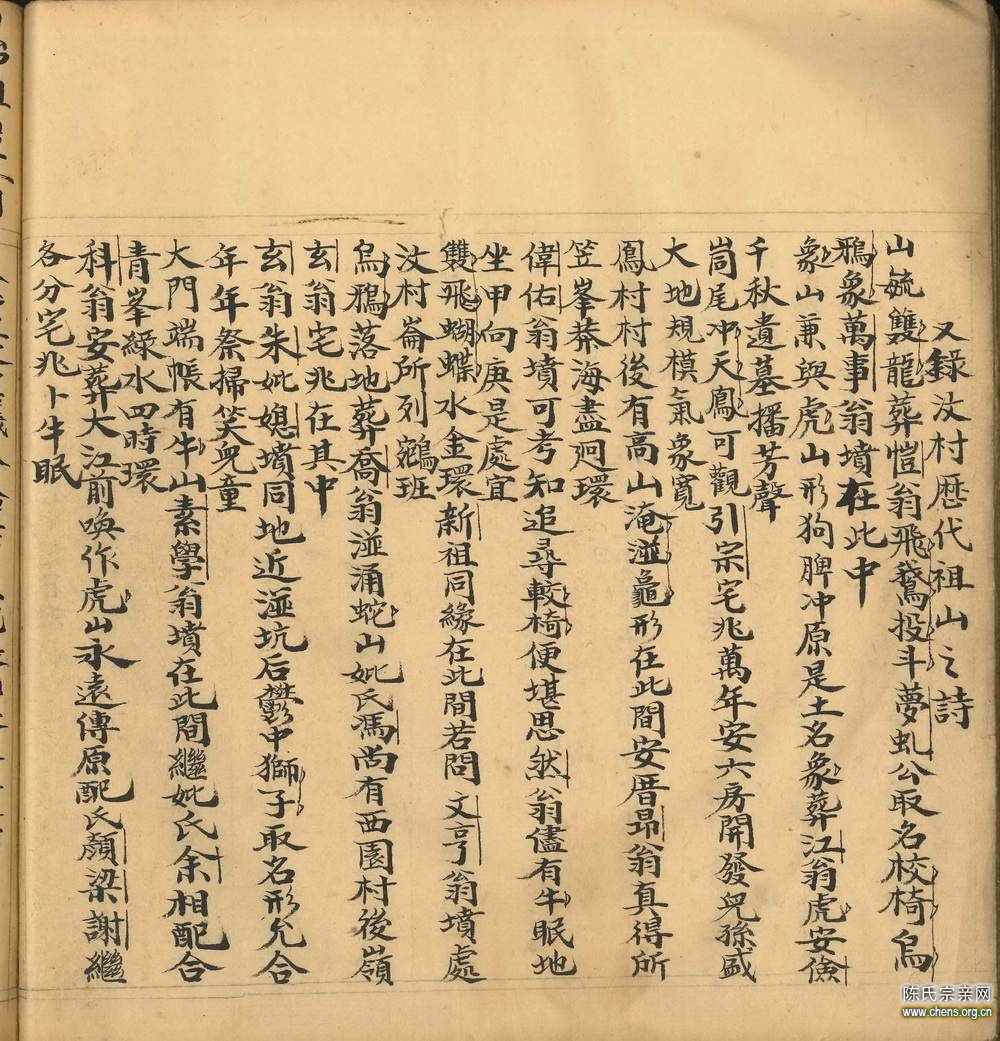 又錄汶村歷代祖山之詩
山毓雙龍葬愷翁飛鵞投斗夢虬公取名校椅烏
鴉象萬事翁墳在此中
象山兼與虎山形狗脾冲原是土名象葬江翁虎安儉
千秋遺墓播芳聲
峝尾冲天鳳可觀引宗宅兆萬年安六房開發兒孫盛
大地規模氣象寬
鳳村村後有高山淹湴龜形在此間安厝昂翁真得所
笠峯莽海盡迥環
偉佑翁墳可考知追尋較椅便堪思然翁儘有牛眠地
坐甲向庚是處宜
雙飛蝴蝶水金環新祖同緣在此間若問文亨翁墳處
汶村崙所列鵷班
烏鴉落地葬喬翁湴涌蛇山妣氏馮尚有西園村後嶺
玄翁宅兆在其中
玄翁朱妣媳墳同地近湴坑后欝中獅子取名形允合
年年祭掃笑兒童
大門端帳有牛山素學翁墳在此間繼妣氏余相配合
青峯綠水四時環
科翁安葬大江前喚作虎山永遠傳原配氏顏梁謝繼
各分宅兆卜牛眠
陈氏宗亲网
www.chens.org.cn